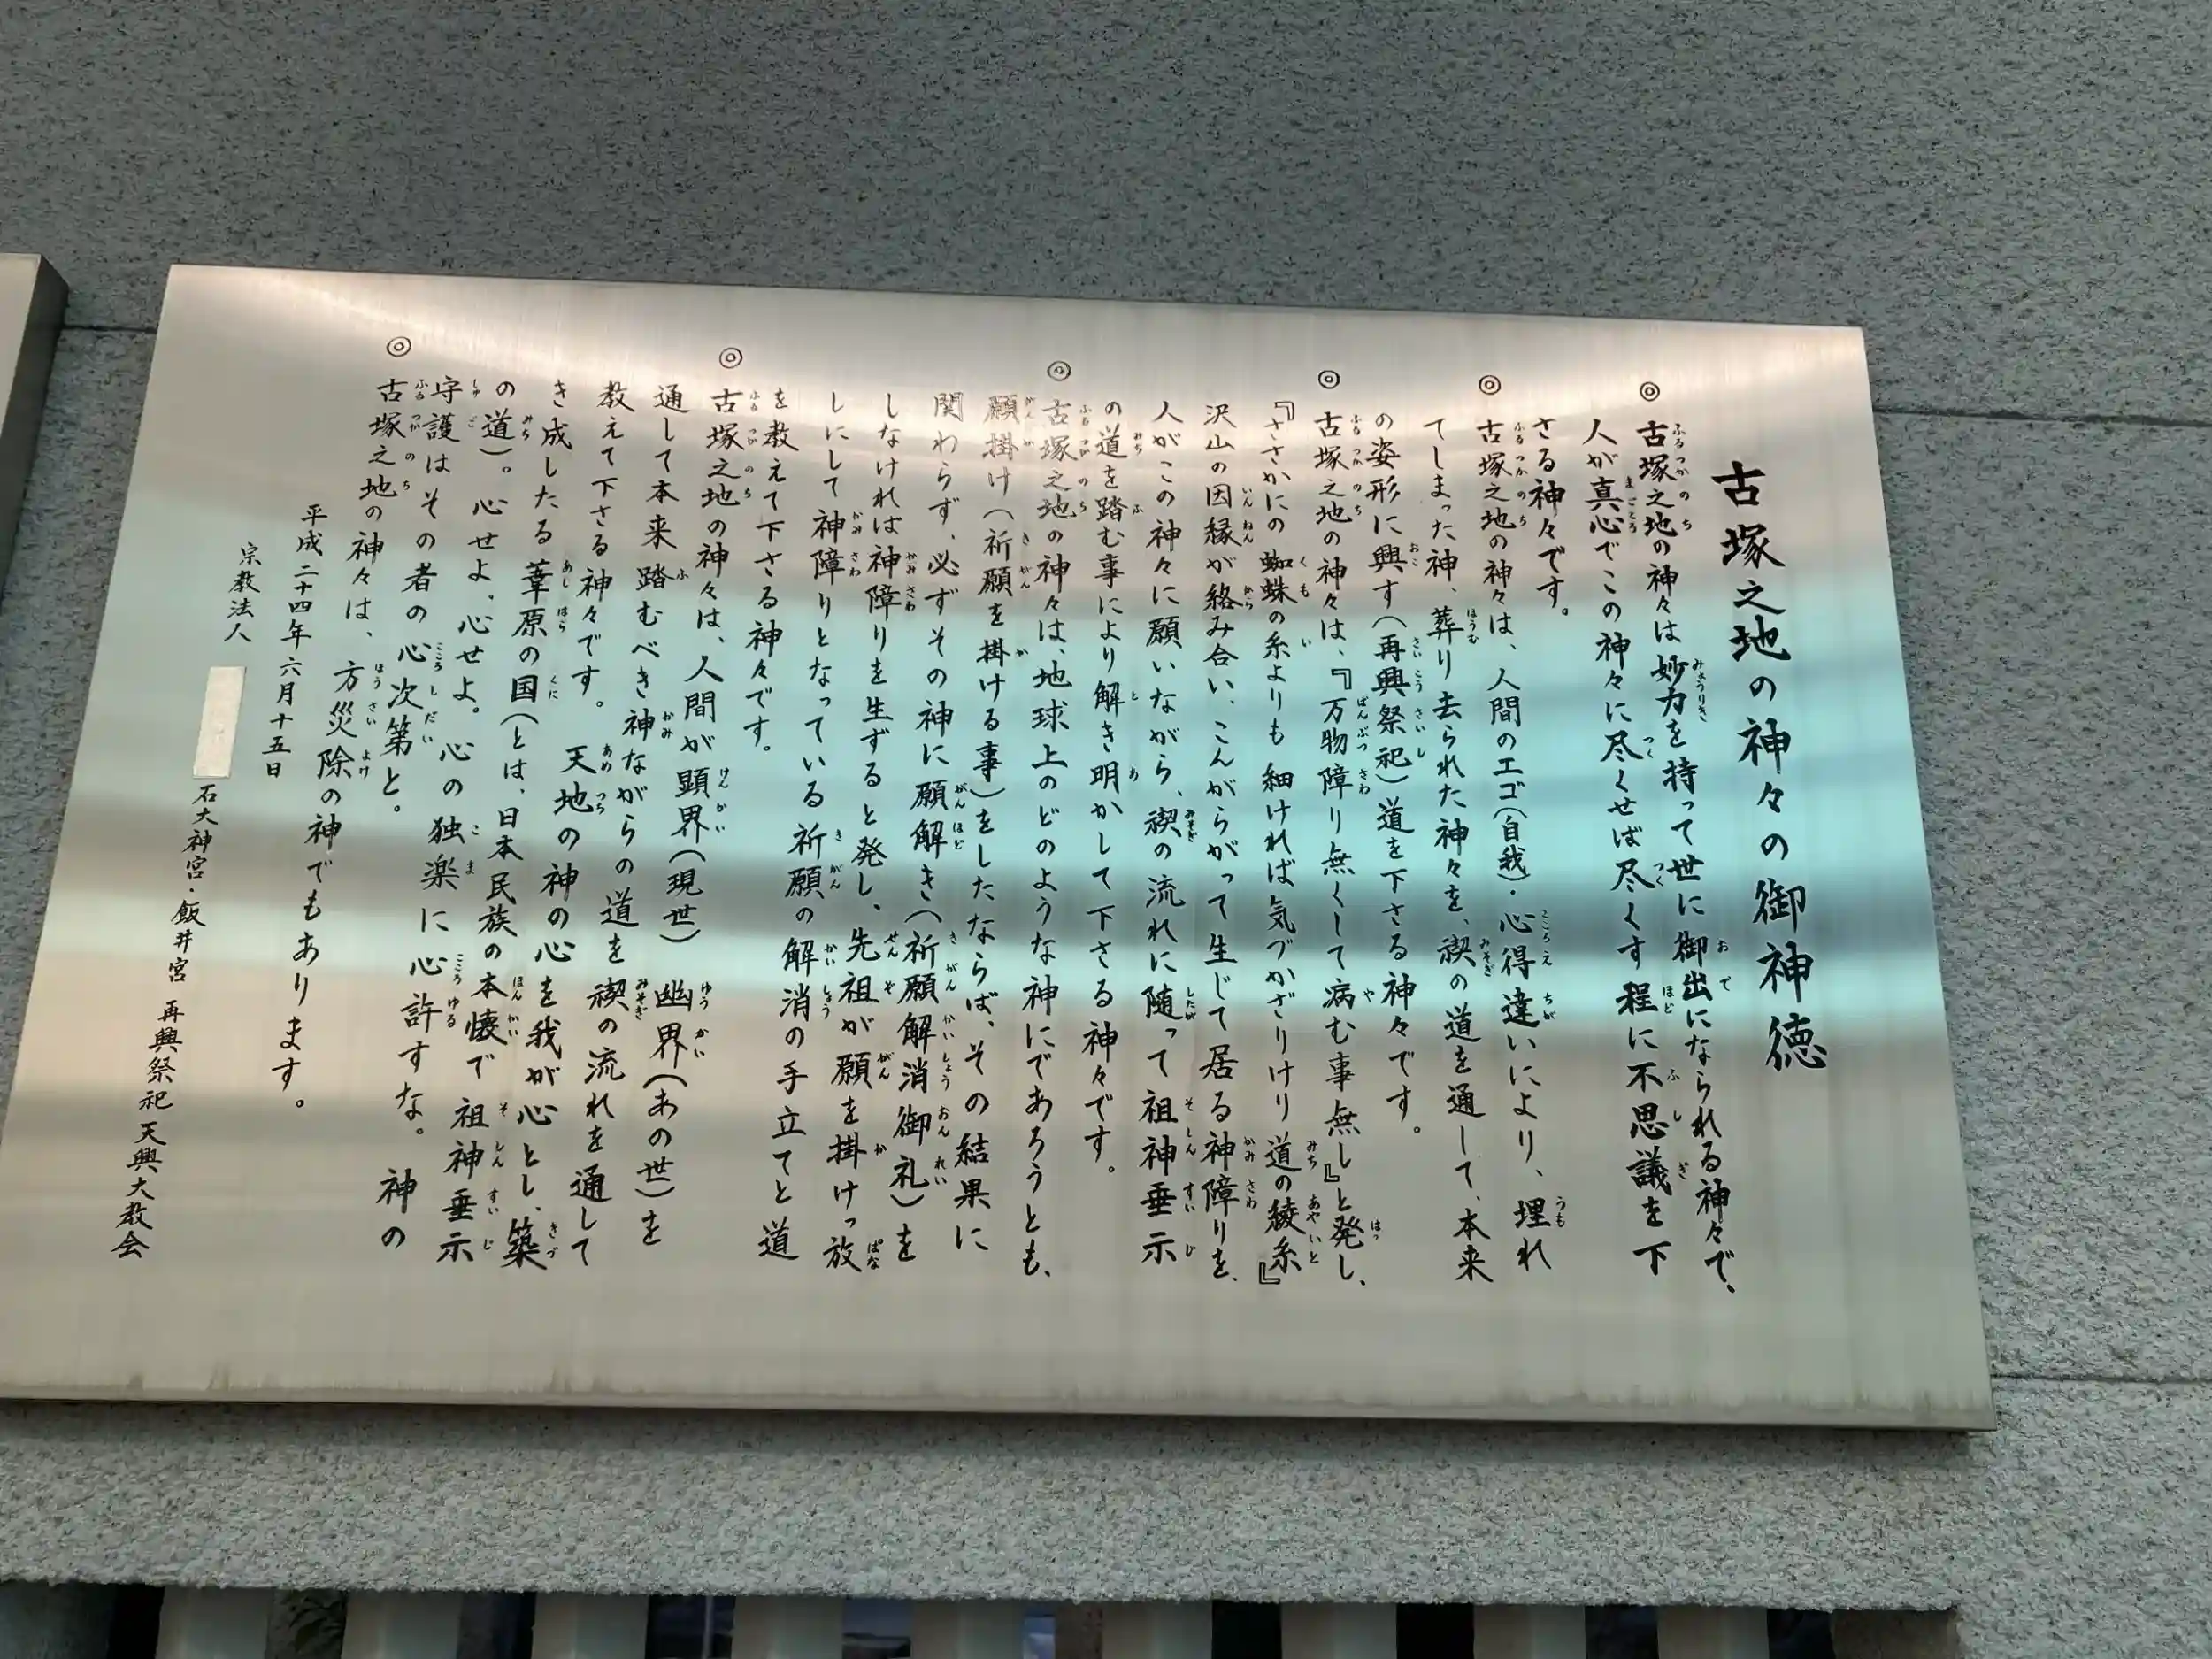 古塚之地の神々の御神徳
◎
古塚之地の神々は妙力を持って世に御出になられる神々で、
人が真心でこの神々に尽くせば尽くす程に不思議を下
さる神々です。
◎
古塚之地の神々は、人間のエゴ(自我)・心得違いにより、埋れ
てしまった神、葬り去られた神々を、禊の道を通して、本来
の姿形に興す(再興祭祀)道を下さる神々です。
◎
古塚之地の神々は、『万物障り無くして病む事無し』と発し、
『ささかにの蜘蛛の糸よりも細ければ気づかざりけり道の綾糸』
沢山の因縁が絡み合い、こんがらがって生じて居る神障りを、
人がこの神々に願いながら、禊の流れに随って祖神垂示
の道を踏む事により解き明かして下さる神々です。
◎
古塚之地の神々は、地球上のどのような神にであろうとも、
願掛け(祈願を掛ける事)をしたならば、その結果に
関わらず、必ずその神に願解き(祈願解消御礼)を
しなければ神障りを生ずると発し、先祖が願を掛けっ放
しにして神障りとなっている祈願の解消の手立てと道
を教えて下さる神々です。
◎
古塚之地の神々は、人間が顕界(現世)幽界(あの世)を
通して本来踏むべき神ながらの道を禊の流れを通して
教えて下さる神々です。天地の神の心を我が心とし、築
き成したる葦原の国(とは、日本民族の本懐で祖神垂示
の道)。心せよ。心せよ。心の独楽に心許すな。神の
守護はその者の心次第と。
◎
古塚之地の神々は、方災除の神でもあります。
平成二十四年六月十五日
宗教法人
石大神宮・飯井宮 再興祭祀 天興大教会